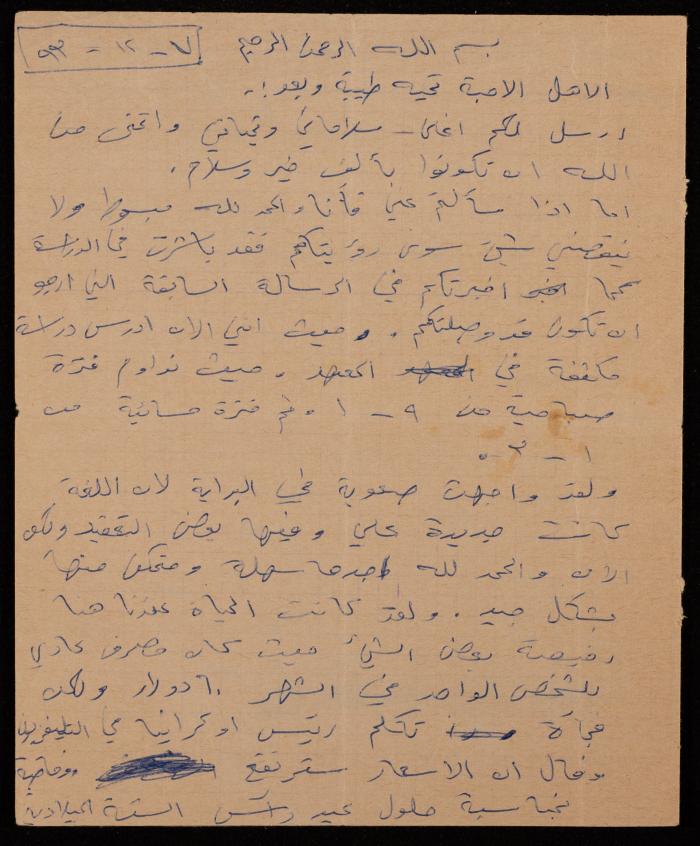 بسم الله الرحمن الرحيم ٧ - ١٢ - ٩٣
الاهل الاحبة تحيه طيبة وبعد :.
ارسل لكم اغلى سلاماتي وتحياتي واتمنى من
الله ان تكونوا بألف خير وسلام .
اما اذا سألتم عني فأنا والحمد لله مبسوط ولا
ينقصني شيئ سوى رؤيتكم فقد باشرت في الدراسة
كما اخبرتكم في الرسالة السابقة التي ارجو
ان تكون قد وصلتكم . حيث انني الان ادرس دراسة
مكثفة في المعهد . حيث نداوم فترة
صباحية من ٩ - ١ . ثم فترة مسائية من
١ - ٣ .
ولقد واجهت صعوبة في البداية لان اللغة
كانت جديدة علي وفيها بعض التعقيد ولكن
الان والحمد لله اجدها سهلة ومتمكن منها
بشكل جيد . ولقد كانت الحياة عندنا هنا
رخيصة بعض الشيئ حيث كان مصرف عادي
للشخص الواحد في الشهر ٦٠ دولار ولكن
فجأة تكلم رئيس اوكرانيا في التليفزيون
وقال ان الاسعار سترتفع وخاصة
بمناسبة حلول عيد رأس السنة الميلادية